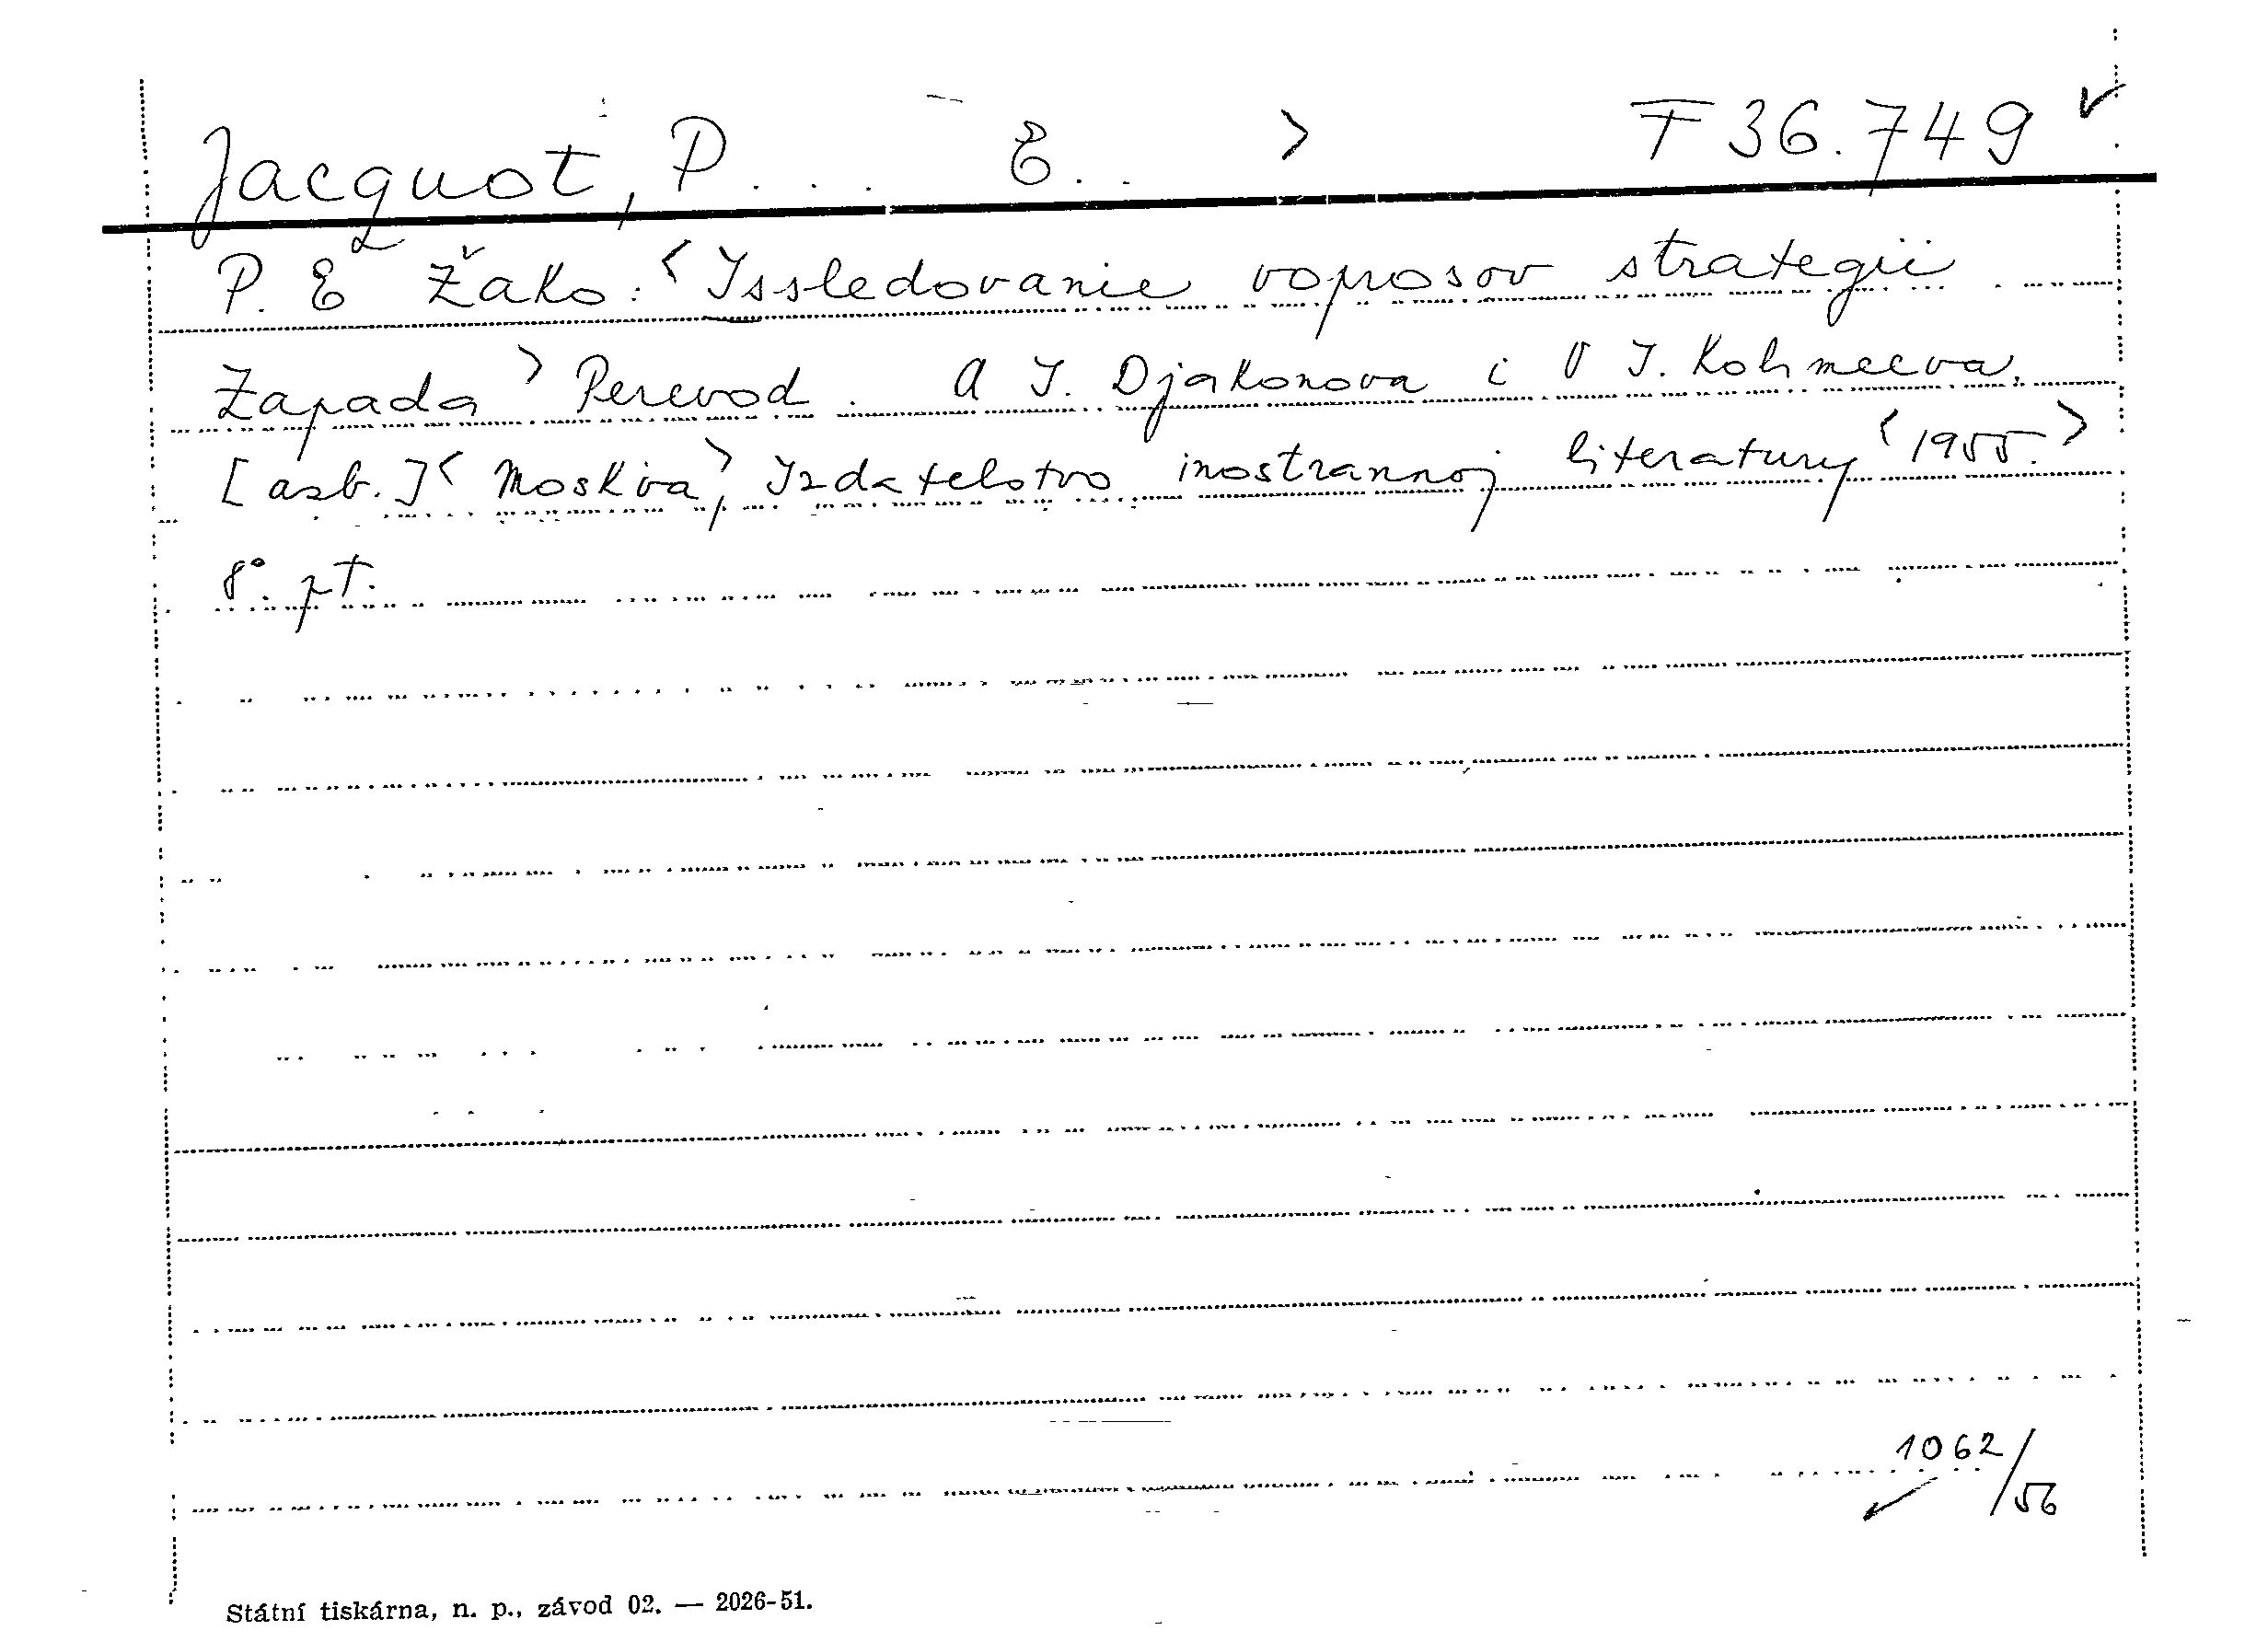 Jacquot, P... E.. > F 36.749
P. E Žako: <Issledovanie voprosov strategii
Zapada> Perevod. A I. Djakonova i V I. Kohmeeva.
[azb.] <Moskva>, Izdatelstvo inostrannoj literatury <1955.>
8°. pt.
1062/56
Státní tiskárna, n. p., závod 02. — 2026-51.